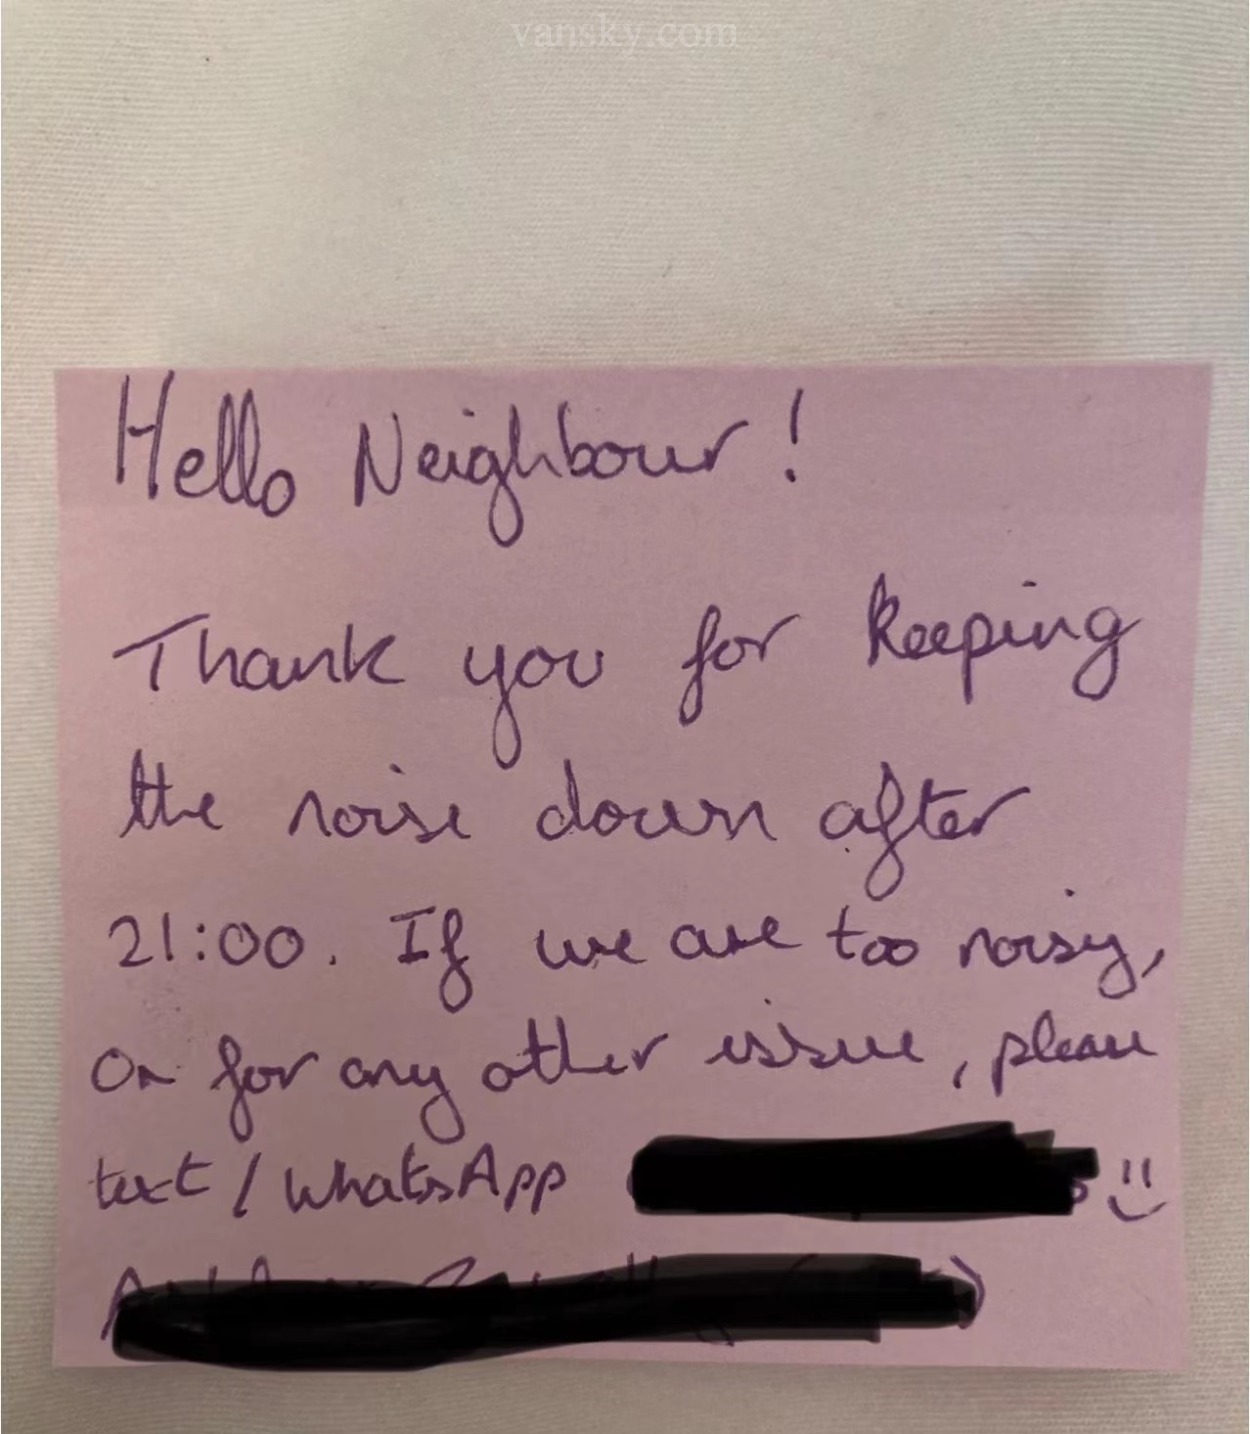 vansky.com
Hello Neighbour!
Thank you for keeping
the noise down after
21:00. If we are too noisy,
or for any other issue, please
text / WhatsApp